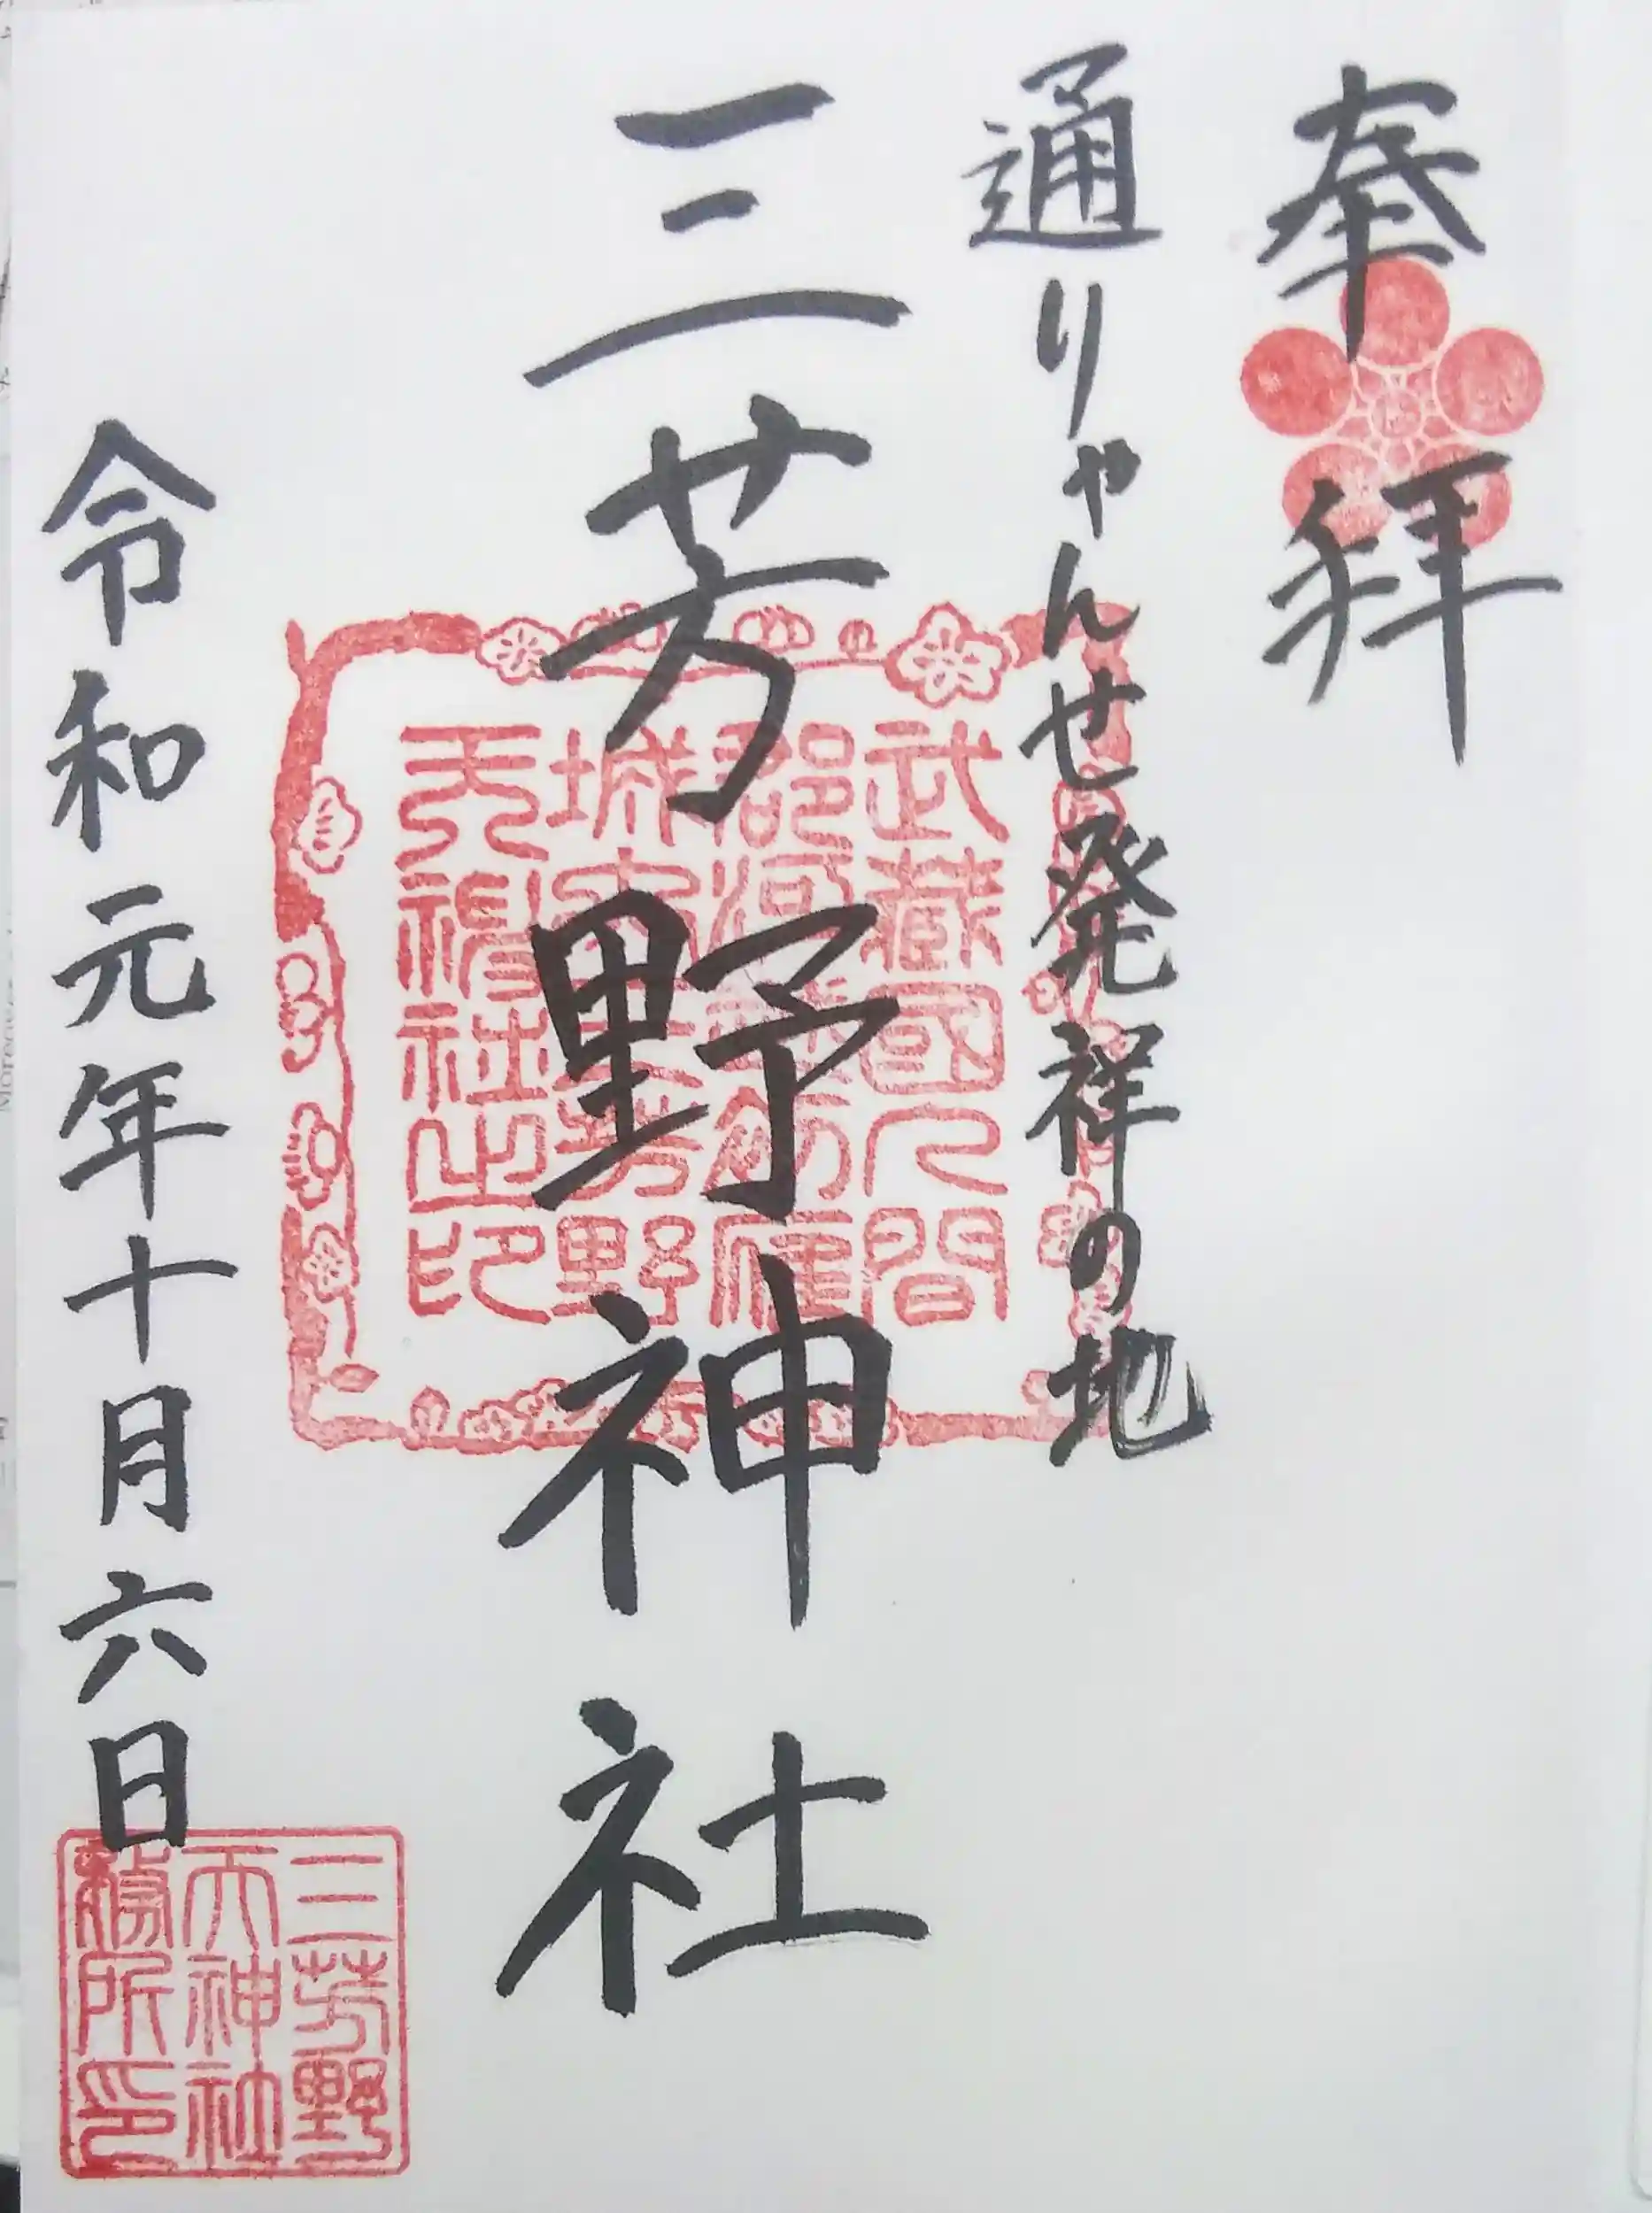 奉拝
通りゃんせ発祥の地
三芳野神社
武蔵國入間
郡河越初雁
城内三芳野
天神社之印
令和元年十月六日
三芳野
天神社
務所印